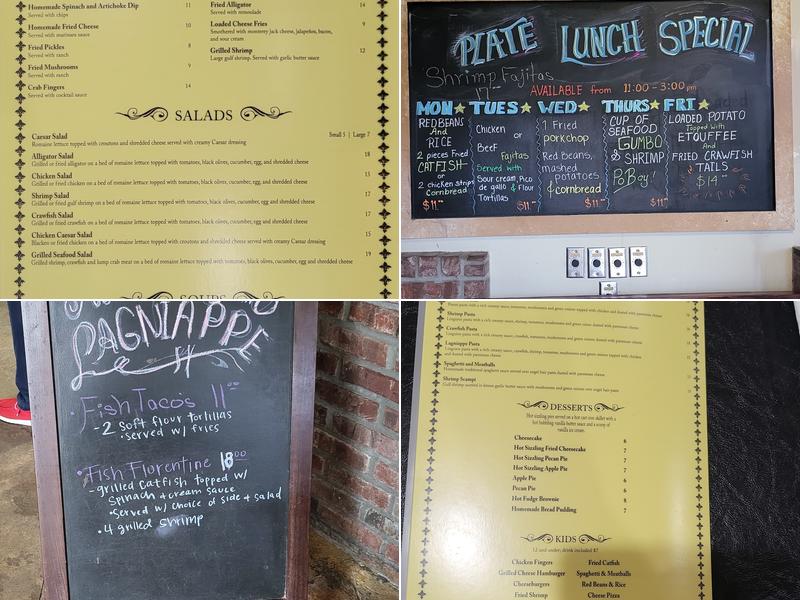 Homemade Spinach and Artichoke Dip 11
Served with chips
Homemade Fried Cheese 10
Served with marinara sauce
Fried Pickles 8
Served with ranch
Fried Mushrooms 9
Served with ranch
Crab Fingers 14
Served with cocktail sauce
Fried Alligator 14
Served with remoulade
Loaded Cheese Fries 9
Smothered with monterey jack cheese, jalapeños, bacon,
and sour cream
Grilled Shrimp 12
Large gulf shrimp. Served with garlic butter sauce
SALADS
Caesar Salad Small 5 | Large 7
Romaine lettuce topped with croutons and shredded cheese served with creamy Caesar dressing
Alligator Salad 18
Grilled or fried alligator on a bed of romaine lettuce topped with tomatoes, black olives, cucumber, egg, and shredded cheese
Chicken Salad 15
Grilled or fried chicken on a bed of romaine lettuce topped with tomatoes, black olives, cucumber, egg, and shredded cheese
Shrimp Salad 17
Grilled or fried gulf shrimp on a bed of romaine lettuce topped with tomatoes, black olives, cucumber, egg, and shredded cheese
Crawfish Salad 17
Grilled or fried crawfish on a bed of romaine lettuce topped with tomatoes, black olives, cucumber, egg, and shredded cheese
Chicken Caesar Salad 15
Blacken or fried chicken on a bed of romaine lettuce topped with croutons and shredded cheese served with creamy Caesar dressing
Grilled Seafood Salad 19
Grilled shrimp, crawfish and lump crab meat on a bed of romaine lettuce topped with tomatoes, black olives, cucumber, egg and shredded cheese
SOUPS
PLATE LUNCH SPECIAL
Shrimp Fajitas
17
AVAILABLE from 11:00-3:00pm
MON TUES WED THURS FRI
RED BEANS
And
RICE
2 pieces Fried
CATFISH
or
2 chicken strips
Cornbread
$11.
Chicken or
Beef
Fajitas
Served with
Sour cream, Pico
de gallo & Flour
Tortillas
$11.
1 Fried
porkchop
Red Beans,
mashed
potatoes
& cornbread
$11.
CUP OF
SEAFOOD
GUMBO
& SHRIMP
PoBoy!
$11
LOADED POTATO
Topped with
ETOUFFEE
And
FRIED CRAWFISH
TAILS
$14
LAGNIAPPE
Fish Tacos 11.00
-2 Soft flour tortillas
• served w/ fries
Fish Florentine 18.00
-grilled Catfish topped w/
Spinach + cream sauce
-Served w/ choice of side + salad
• 4 grilled shrimp
Shrimp Pasta
Crawfish Pasta
Lagniappe Pasta
and dusted with parmesan cheese
Spaghetti and Meatballs
Shrimp Scampi
DESSERTS
Hot sizzling pies served on a hot cast iron skillet with a
hot bubbling vanilla butter sauce and a scoop of
vanilla ice cream.
Cheesecake 6
Hot Sizzling Fried Cheesecake 7
Hot Sizzling Pecan Pie 7
Hot Sizzling Apple Pie 7
Apple Pie 6
Pecan Pie 6
Hot Fudge Brownie 8
Homemade Bread Pudding 7
KIDS
12 and under; drink included $7
Chicken Fingers Fried Catfish
Grilled Cheese Hamburger Spaghetti & Meatballs
Cheeseburgers Red Beans & Rice
Fried Shrimp Cheese Pizza